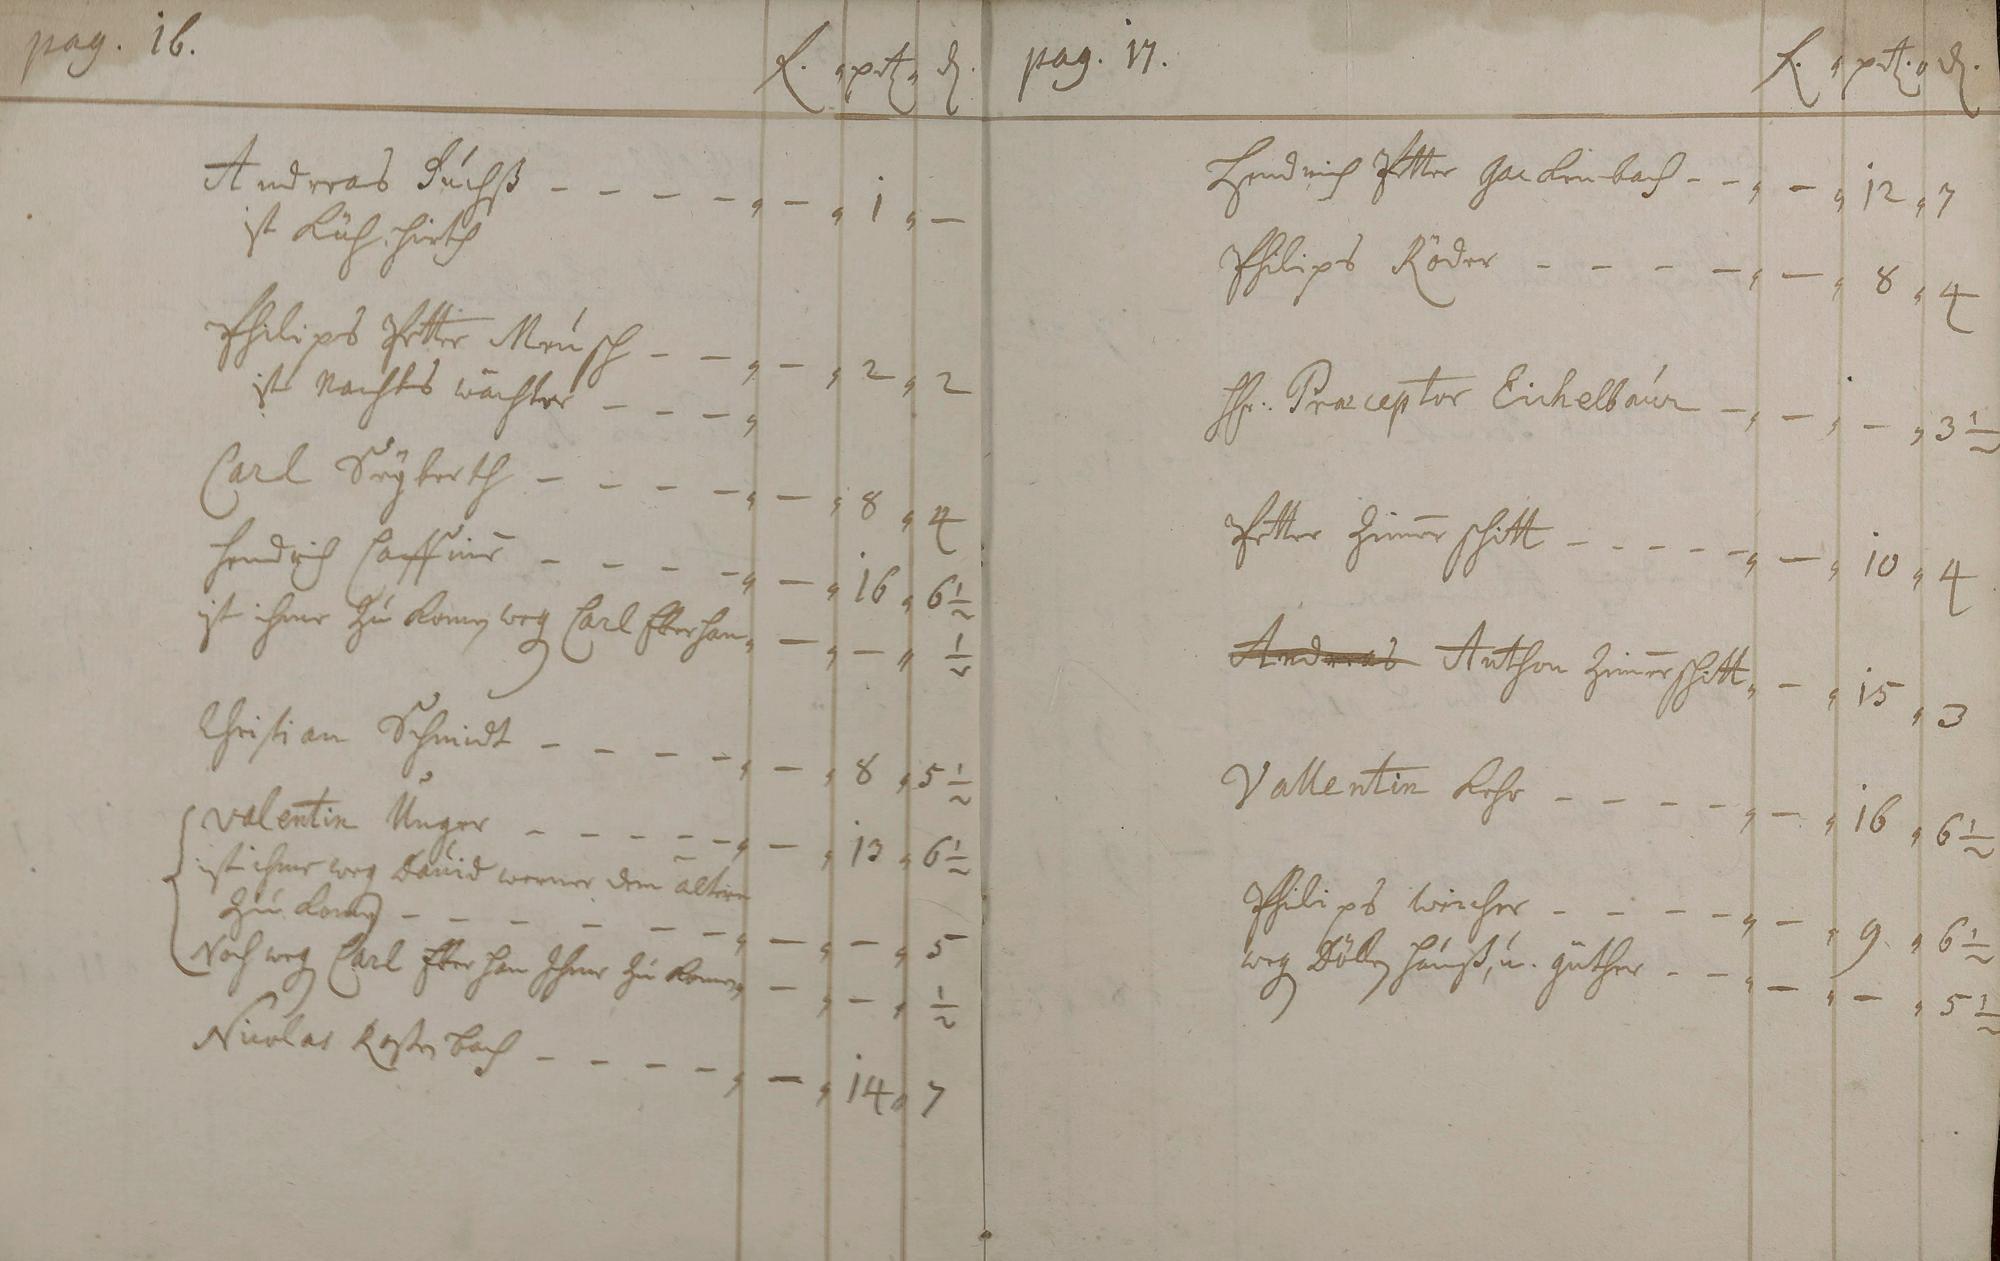 pag. 16.
f. " xr " d.
Andreas Fuchß - - - - " - " 1 " -
ist Küh hirth
Philips Petter Meusch - - " - " 2 " 2
ist Nachts wächter - - - "
Carl Seÿberth - - - - " - " 8 " 4
Hendrich - - - - " - " 16 " 6 1/2
ist ihme zu komen weg Carl Eberhan " - " - " 1/2
Christian Schmidt - - - - " - " 8 " 5 1/2
Valentin Unger - - - - - " - " 13 " 6 1/2
ist ihme weg David werner dem ältern
zu komen - - - - - - " - " - " 5
Noch weg Carl Eberhan Ihme zu komen " - " - " 1/2
Nicolas - - - - " - " 14 " 7
pag. 17.
f. " xr. " d.
Hendrich Petter Gackenbach - - " - " 12 " 7
Philips Röder - - - - " - " 8 " 4
Hr. Praeceptor Eichelbaur - " - " - " 3 1/2
Petter Zimerschitt - - - - - " - " 10 " 4
Andreas Anthon Zimerschitt " - " 15 " 3
Vallentin Kehr - - - - " - " 16 " 6 1/2
Philips - - - - " - " 9 " 6 1/2
weg hauß, u. güther - - " - " - " 5 1/2